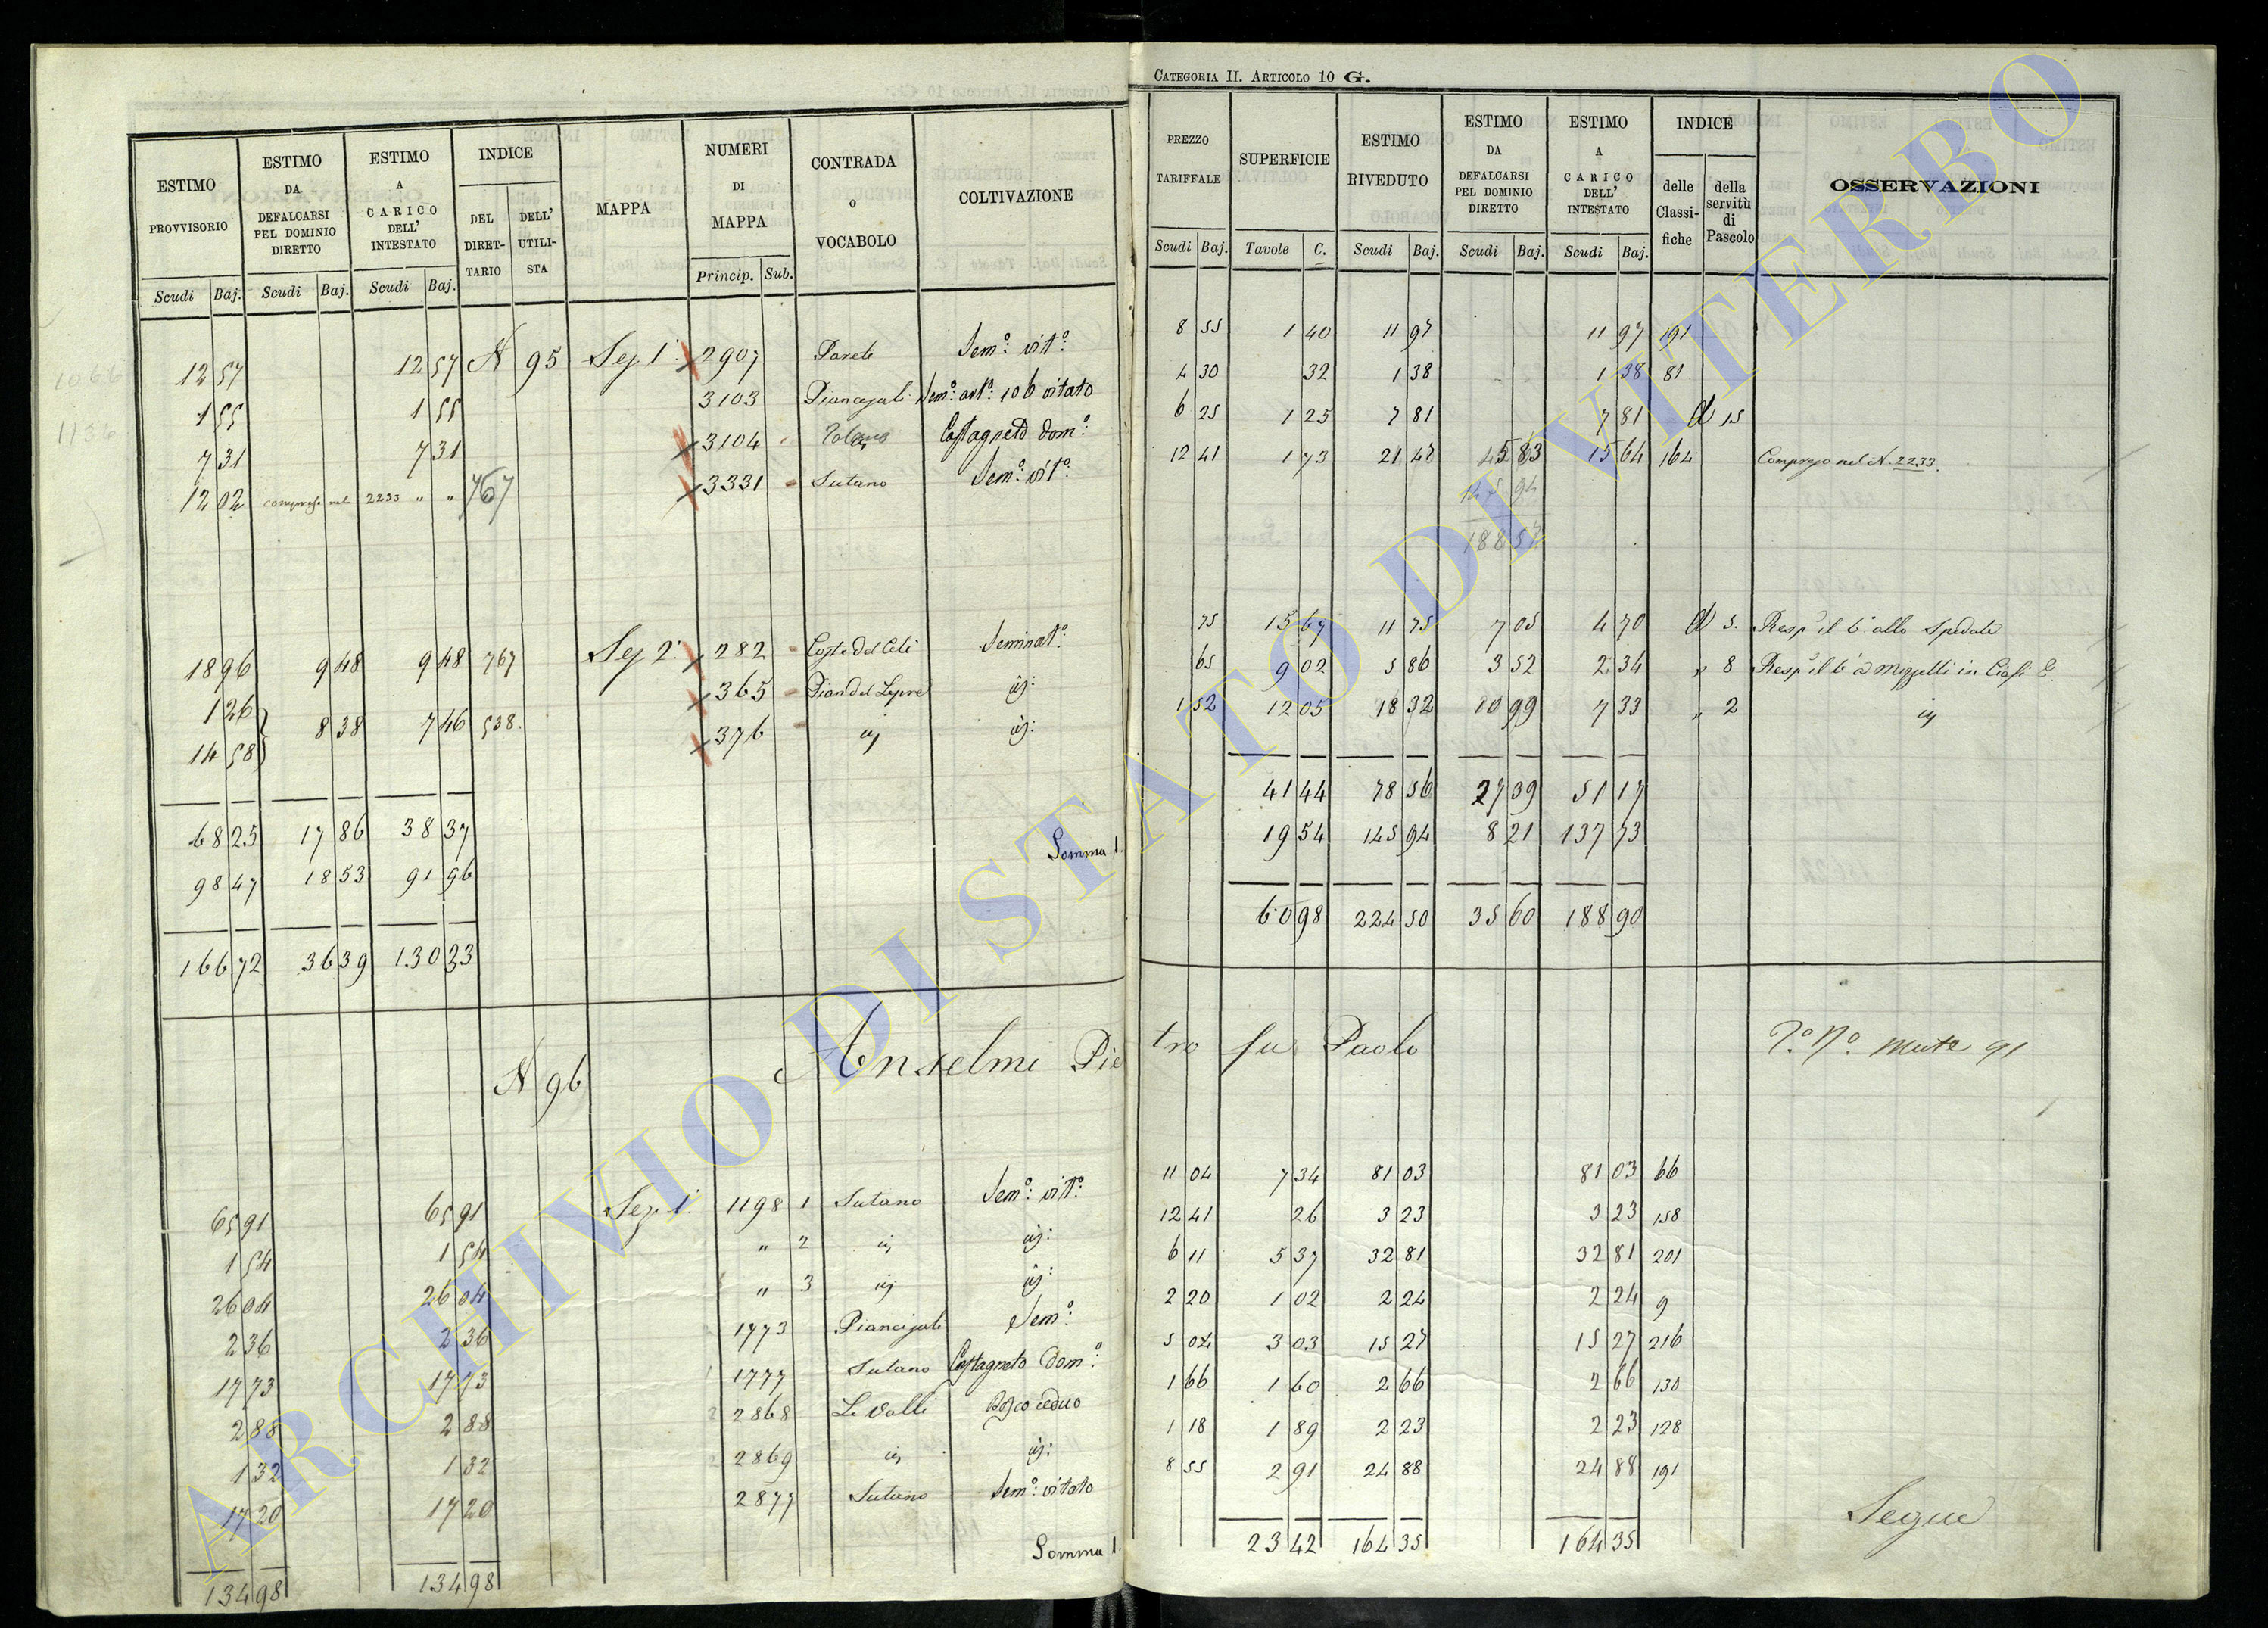 CATEGORIA II. ARTICOLO 10 G.
ESTIMO PROVVISORIO | ESTIMO DA DEFALCARSI PEL DOMINIO DIRETTO | ESTIMO A CARICO DELL' INTESTATO | INDICE DEL DIRET-TARIO | DELL' UTILI-STA | MAPPA | NUMERI DI MAPPA | CONTRADA O VOCABOLO | COLTIVAZIONE
Scudi Baj. | Scudi Baj. | Scudi Baj. | Princip. Sub.
PREZZO TARIFFALE | SUPERFICIE | ESTIMO RIVEDUTO | ESTIMO DA DEFALCARSI PEL DOMINIO DIRETTO | ESTIMO A CARICO DELL' INTESTATO | INDICE delle Classi-fiche | della servitù di Pascolo | OSSERVAZIONI
Scudi Baj. | Tavole C. | Scudi Baj. | Scudi Baj. | Scudi Baj.
12 57 | 12 57 | N 95 | Sez 1ª | 2907 | Parete | Sem.º vit.º | 8 55 | 1 40 | 11 97 | 11 97 | 191
1 55 | 1 55 | 3103 | Piancajali | vitato | 4 30 | 32 | 1 38 | 1 38 | 81
7 31 | 7 31 | 3104 | Castagneto dom.º | 6 25 | 1 25 | 7 81 | 7 81 | 15
12 02 | compreso nel 2233 " " | 767 | 3331 | Sutano | Sem.º vit.º | 12 41 | 1 73 | 21 47 | 15 64 | 164 | Compreso nel N. 2233.
145 94
188 57
18 96 | 9 48 | 9 48 | 767 | Sez 2ª | 282 | Seminat.º | 75 | 15 67 | 11 75 | 7 05 | 4 70 | 5. | Resp. il 6º allo Spedale
1 26 | 365 | Pian del Lepre | id: | 65 | 9 02 | 5 86 | 3 52 | 2 34 | " 8
8 38 | 7 46 | 538.
14 58 | 376 | id | id: | 1 52 | 12 05 | 18 32 | 10 99 | 7 33 | " 2 | id
68 25 | 17 86 | 38 37 | 41 44 | 78 56 | 27 39 | 51 17
98 47 | 18 53 | 91 96 | Somma 1. | 19 54 | 145 94 | 8 21 | 137 73
166 72 | 36 39 | 130 33 | 60 98 | 224 50 | 35 60 | 188 90
N 96 | Anselmi Pietro fu Paolo | 91
65 91 | 65 91 | Sez. 1ª | 1198 1 | Sutano | Sem.º vit.º | 11 04 | 7 34 | 81 03 | 81 03 | 66
1 54 | 1 54 | " 2 | id | id: | 12 41 | 26 | 3 23 | 3 23 | 158
26 04 | 26 04 | " 3 | id | id: | 6 11 | 5 37 | 32 81 | 32 81 | 201
2 36 | 2 36 | 1773 | Piancajali | Sem.º | 2 20 | 1 02 | 2 24 | 2 24 | 9
17 73 | 17 73 | 1777 | Sutano | Castagneto Dom.º | 5 04 | 3 03 | 15 27 | 15 27 | 216
2 88 | 2 88 | 2868 | Le Valli | Bosco ceduo | 1 66 | 1 60 | 2 66 | 2 66 | 130
1 32 | 1 32 | 2869 | id | id: | 1 18 | 1 89 | 2 23 | 2 23 | 128
17 20 | 17 20 | 2877 | Sutano | Sem.º vitato | 8 55 | 2 91 | 24 88 | 24 88 | 191
Segue
134 98 | 134 98 | Somma 1. | 23 42 | 164 35 | 164 35
ARCHIVIO DI STATO DI VITERBO